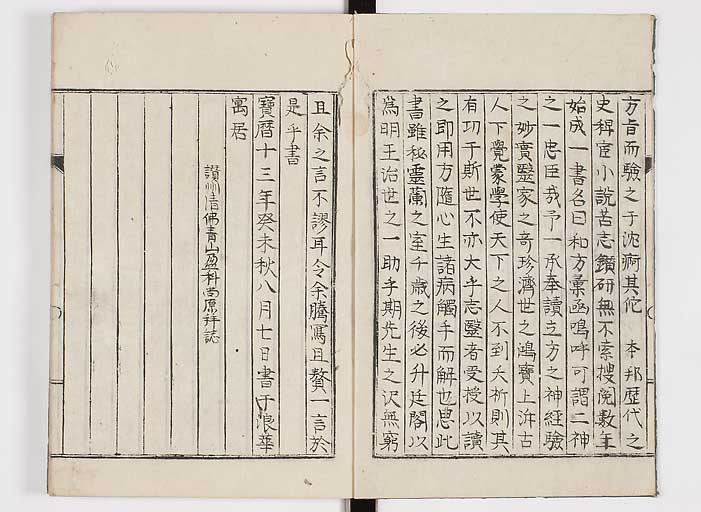 方旨而驗之于沈痾其佗　本邦歷代之
史稗官小說苦志鑽研無不索搜閱數年
始成一書名曰和方彙函嗚呼可謂二神
之一忠臣哉予一承奉讀立方之神經驗
之妙實毉家之奇珍濟世之鴻寶上泝古
人下覺蒙學使天下之人不到夭折則其
有功于斯世不亦大乎志毉者受授以讀
之即用方隨心生諸病觸手而解也思此
書雖秘靈蘭之室千歲之後必升廷閣以
爲明王治世之一助乎期先生之沢無窮
且余之言不謬耳令余騰寫且贅一言於
是乎書
寶曆十三年癸未秋八月七日書于浪華
寓居
讃州清佛青山盈科尚原拜誌